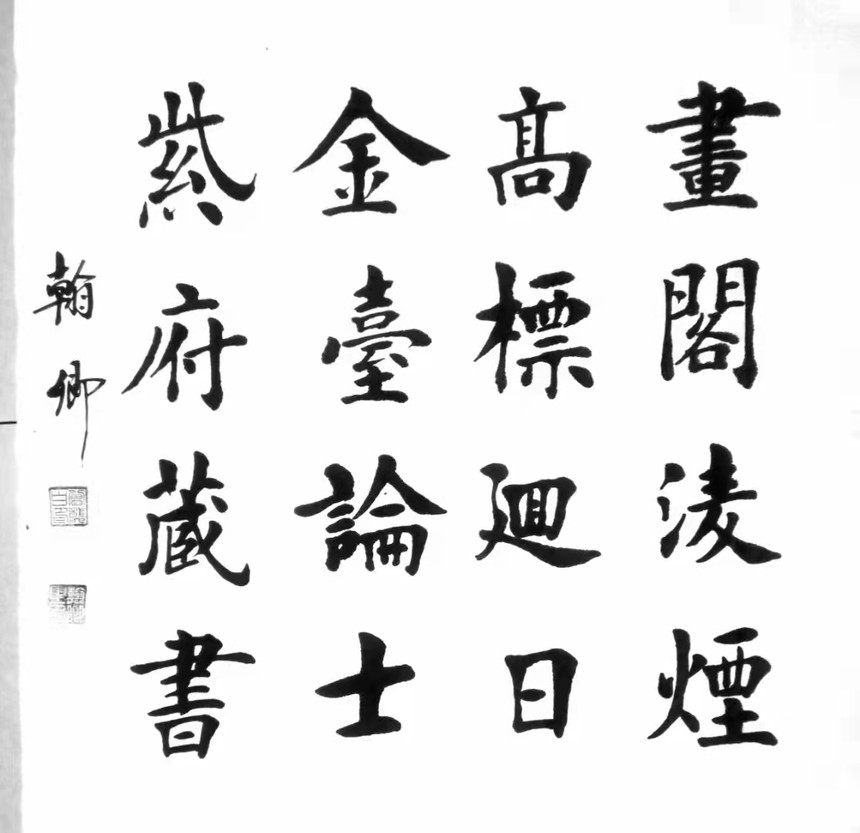 畫閣淩煙
髙標廻日
金臺論士
紫府蔵書
翰卿